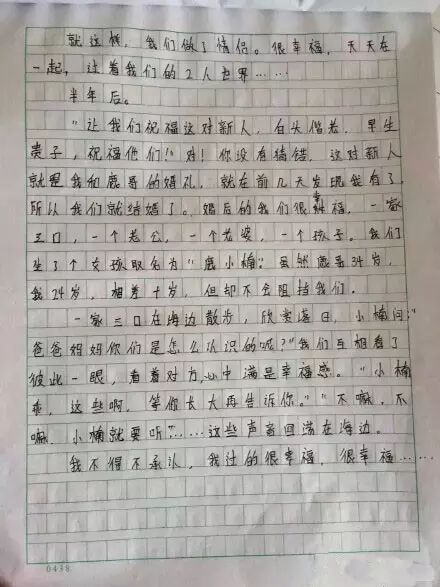 就这样，我们做了情侣。很幸福，天天在
一起，过着我们的2人世界……
半年后。
"让我们祝福这对新人，白头偕老，早生
贵子，祝福他们！"对！你没有猜错，这对新人
就是我和鹿哥的婚礼，就在前几天发现我有了，
所以我们就结婚了。婚后的我们很幸福，一家
三口，一个老公，一个老婆，一个孩子。我们
生了个女孩取名为"鹿小楠"虽然鹿哥34岁，
我24岁，相差十岁，但却不会阻挡我们。
一家三口在海边散步，欣赏落日，小楠问："
爸爸妈妈你们是怎么认识的呢？"我们互相看了
彼此一眼，看着对方，心中满是幸福感。"小楠
乖，这些啊，等你长大再告诉你。""不嘛，不
嘛，小楠就要听"……这些声音回荡在海边。
我不得不承认，我过的很幸福，很幸福……
0438